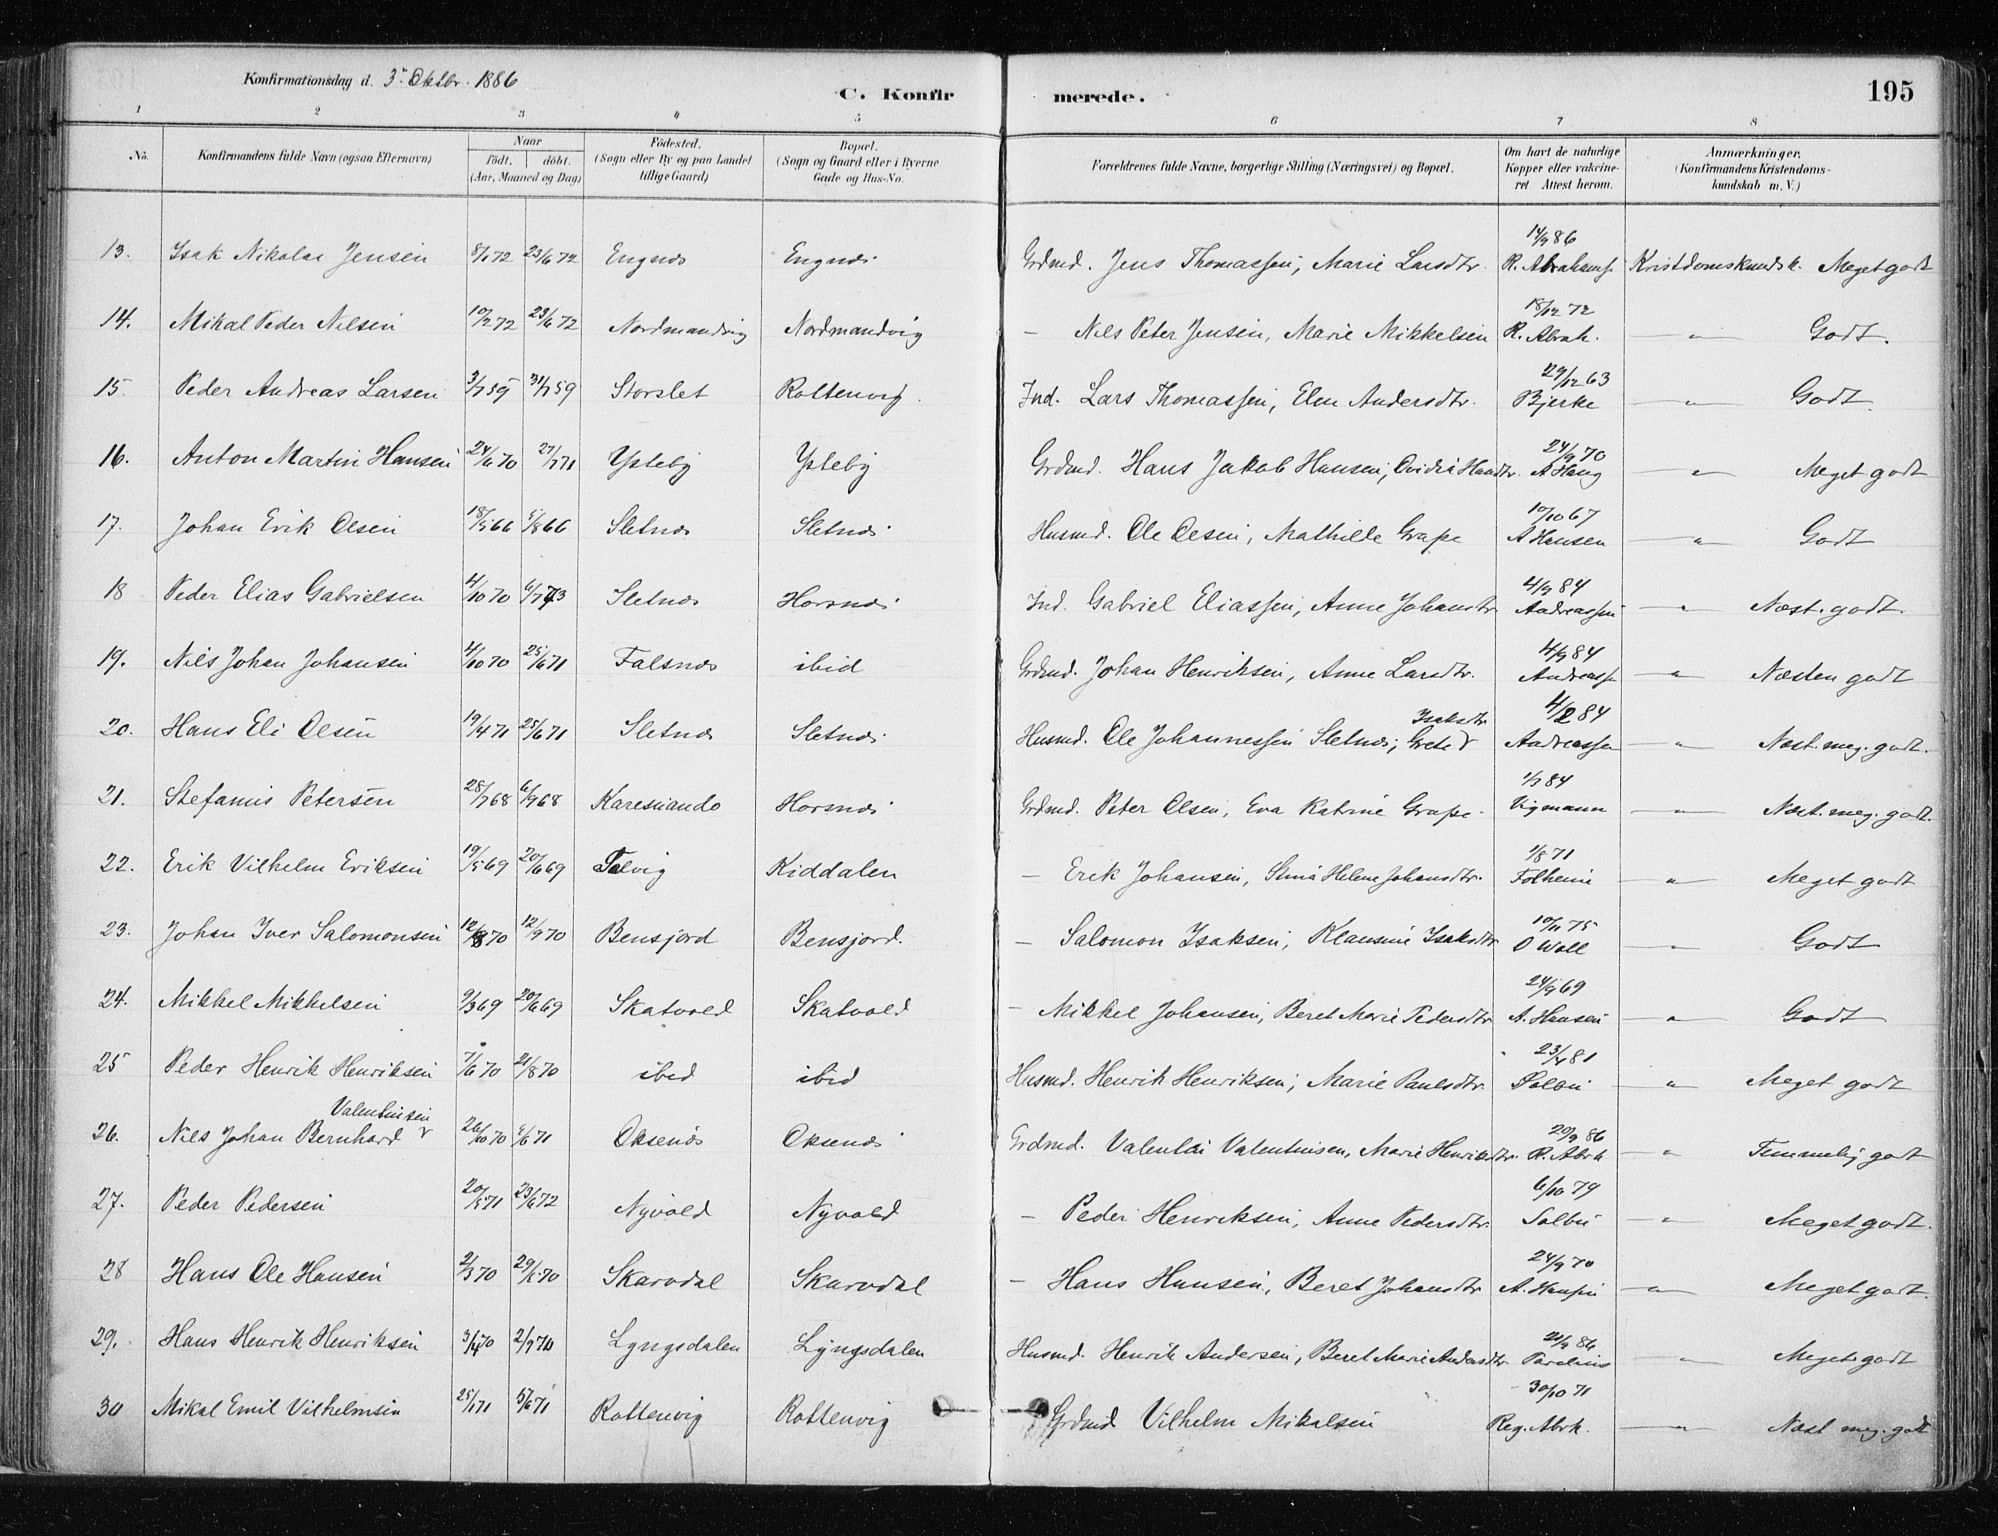 Konfirmationsdag d. 3' Oktbr. 1886
C. Konfirmerede.
195
1 2 3 4 5 6 7 8
No. Konfirmandens fulde Navn (ogsaa Efternavn) Naar födt. döbt. (Aar, Maaned og Dag) Födested. (Sogn eller By og paa Landet tillige Gaard) Bopæl. (Sogn og Gaard eller i Byerne Gade og Hus-No. Forældrenes fulde Navne, borgerlige Stilling (Næringsvei) og Bopæl. Om havt de naturlige Kopper eller vakcineret Attest herom. Anmærkninger. (Konfirmandens Kristendomskundskab m. V.)
13. Isak Nikolai Jensen 8/1 72 23/6 72 Engnæs Engnæs Grdmd. Jens Thomassen, Marie Larsdtr. 14/9 86 R. Abrahams. Kristdomskundsk. Meget godt
14. Mikal Peder Nilsen 10/2 72 23/6 72 Nordmandvig Nordmandvig – Nils Peter Jensen, Marie Mikkelsen 18/12 72 R. Abrah. — " — Godt.
15. Peder Andreas Larsen 3/7 59 31/7 59 Storslet Rottenvig. Ind. Lars Thomassen, Elen Andersdtr. 29/12 63 Bjerke — " — Godt.
16. Anton Martin Hansen 24/6 70 27/7 71 Ysteby Ysteby Grdmd. Hans Jakob Hansen, Ovidia Hansdtr. 24/9 70 A Haug — " — Meget godt
17. Johan Erik Olsen 18/5 66 5/8 66 Sletnæs Sletnæs Husmd. Ole Olsen, Mathilde Grape 10/10 67 A Hansen — " — Godt
18 Peder Elias Gabrielsen 4/10 70 6/7 73 Sletnæs Horsnæs Ind. Gabriel Eliassen, Anne Johansdtr. 4/9 84 Andreassen — " — Næst. godt.
19. Nils Johan Johansen 4/10 70 25/6 71 Falsnæs ibid Grdmd. Johan Henriksen, Anne Larsdtr. 4/9 84 Andreass. — " — Næsten godt
20. Hans Eli Olsen 19/4 71 25/6 71 Sletnæs Sletnæs Husmd. Ole Johannessen Sletnæs, Grete Isaksdtr 4/2 84 Andreassen — " — Næst. meg. godt.
21. Stefanus Petersen 28/7 68 6/9 68 Karesuando Horsnæs Grdmd. Peter Olsen, Eva Katrine Grape. 1/7 84 Vigmann — " — Næst. meg. godt.
22. Erik Vilhelm Eriksen 19/5 69 20/6 69 Talvig Kiddalen – Erik Johansen, Helene Johansdtr. 1/8 71 — " — Meget godt
23. Johan Iver Salomonsen 12/8 70 12/9 70 Bensjord Bensjord. – Salomon Isaksen, Klausine Isaksdtr 10/11 75 O Woll — " — Godt
24. Mikkel Mikkelsen 9/3 69 20/6 69 Skatvold Skatvold – Mikkel Johansen, Beret Marie Pedersdtr 24/9 69 A. Hansen — " — Godt
25 Peder Henrik Henriksen 7/6 70 21/8 70 ibid ibid Husmd. Henrik Henriksen, Marie Paulsdtr. 23/4 81 Solbu — " — Meget godt
26. Nils Johan Bernhard Valentinsen 26/10 70 4/6 71 Oksenæs Oksenæs Grdmd. Valentin Valentinsen, Marie Henriksdtr. 20/9 86 R. Abrh — " — Temmelig godt
27. Peder Pedersen 20/5 71 23/6 72 Nyvold Nyvold – Peder Henriksen, Anne Pedersdtr. 6/10 79 Solbu — " — Meget godt.
28 Hans Ole Hansen 2/3 70 29/5 70 Skarvdal Skarvdal – Hans Hansen, Beret Johansdtr 24/9 70 A. Hansen — " — Meget godt.
29. Hans Henrik Henriksen 3/4 70 2/9 70 Lyngsdalen Lyngsdalen Husmd. Henrik Andersen, Beret Marie Andersdtr. 21/9 86 Parelius — " — Meget godt
30 Mikal Emil Vilhelmsen 25/1 71 5/6 71 Rottenvig Rottenvig Grdmd Vilhelm Mikalsen 30/10 71 Reg. Abrh. — " — Næst meg. godt